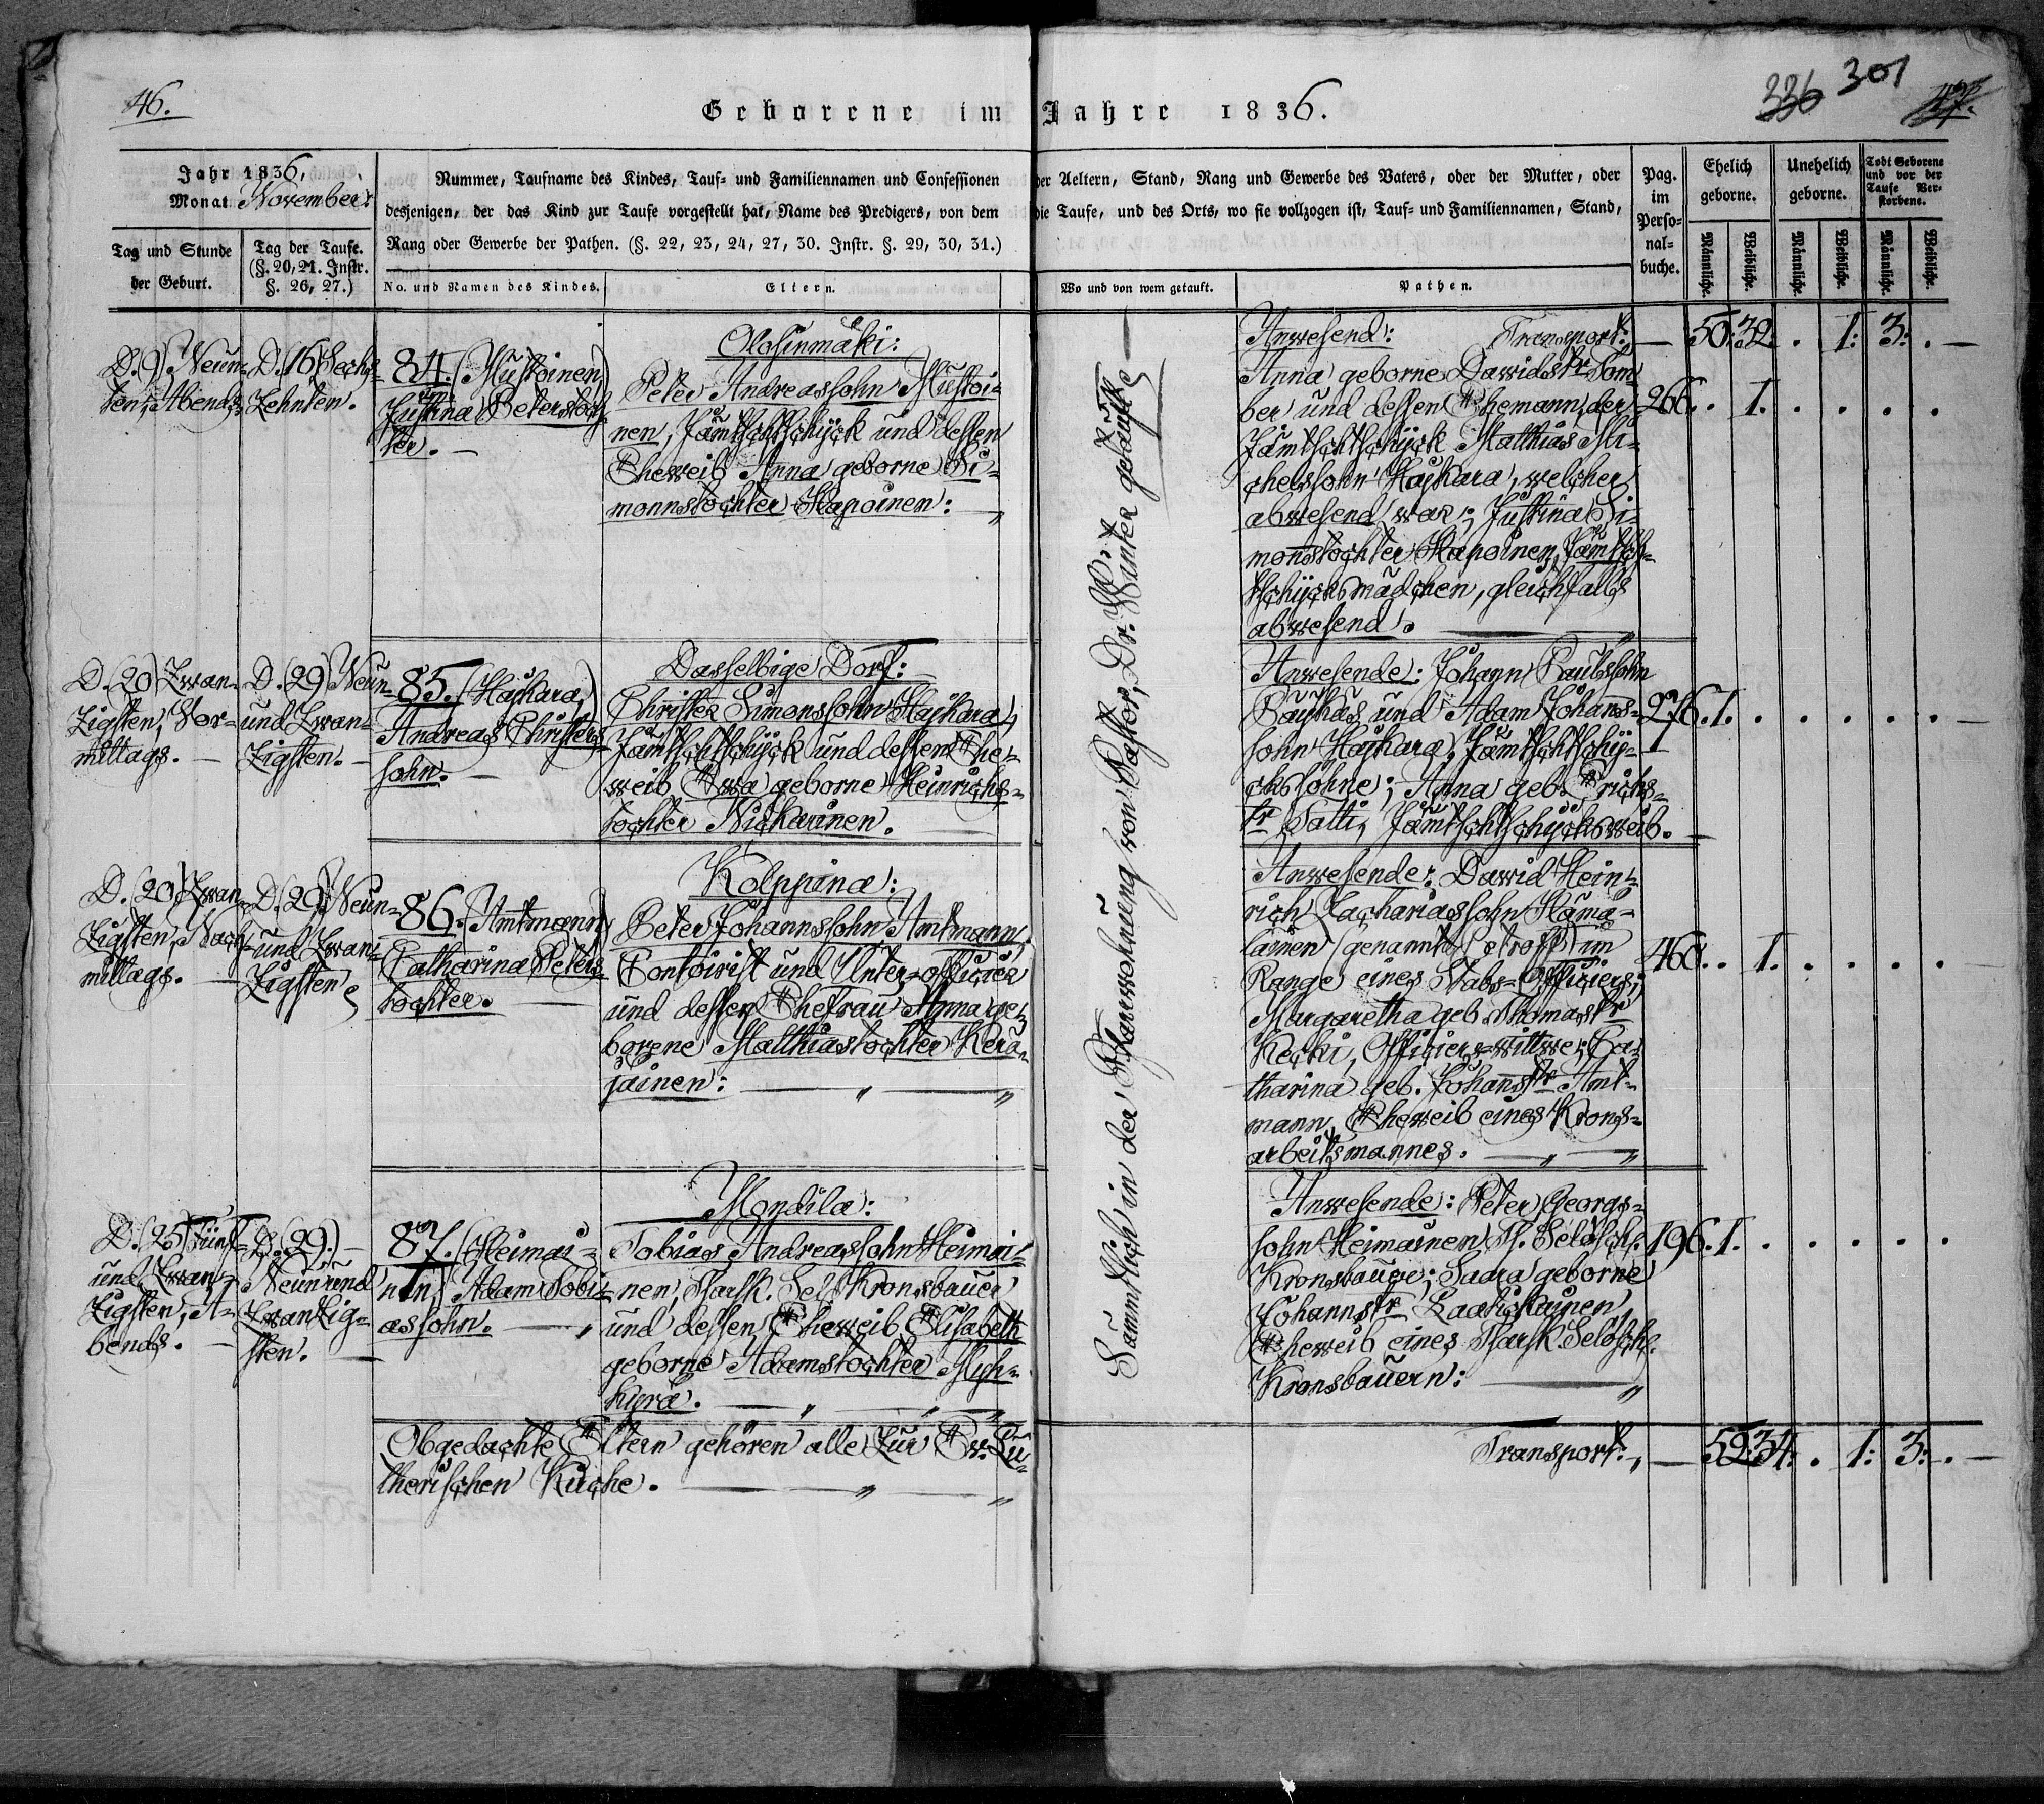 46.
336 301
47.
Geborene im Jahre 1836.
Jahr 1836,
Monat November.
Tag und Stunde
der Geburt.
Tag der Taufe.
(§. 20, 21. Instr.
§. 26, 27.)
Nummer, Taufname des Kindes, Tauf- und Familiennamen und Confessionen der Aeltern, Stand, Rang und Gewerbe des Vaters, oder der Mutter, oder
desjenigen, der das Kind zur Taufe vorgestellt hat, Name des Predigers, von dem die Taufe, und des Orts, wo sie vollzogen ist, Tauf- und Familiennamen, Stand,
Rang oder Gewerbe der Pathen. (§. 22, 23, 24, 27, 30. Instr. §. 29, 30, 31.)
No. und Namen des Kindes.
Eltern.
Wo und von wem getauft.
Pathen.
Pag.
im
Perso-
nal-
buche.
Ehelich
geborne.
Unehelich
geborne.
Todt Geborene
und vor der
Taufe Ver-
storbene.
Männliche.
Weibliche.
Männliche.
Weibliche.
Männliche.
Weibliche.
D. (9) Neun-
ten, Abends.
D. (16) Sech-
zehnten.
84. (Mustoinen)
Justina Peterstoch-
ter. —
Olosinmäki:
Peter Andreassohn Mustoi-
nen, Jämtschtschijck und dessen
Eheweib Anna geborne Si-
monnstochter Hapoinen: „
Sämmtlich in der Pfarrwohnung von Pastor, Dr. getauft. —
Anwesend: Transport:
Anna geborne Davidstr Tom-
ber und dessen Ehemann, der
Jämtschtschijck Matthias Mi-
chelssohn Haykara, welcher
abwesend war; Justina Si-
monstochter Hapoinen, Jämtsch-
tschijcksmädchen, gleichfalls
abwesend. — „
— 50: 32: . 1: 3: . —
266. . 1. . . . .
D. (20) Zwan-
zigsten, Vor-
mittags. —
D. (29) Neun-
und Zwan-
zigsten. —
85. (Haykara)
Andreas Christers-
sohn. —
Dasselbige Dorf:
Christer Simonssohn Haykara,
Jämtschtschijck und dessen Ehe-
weib Ewa geborne Heinrichs-
tochter Nickarinen. —
Anwesende: Johann Paulssohn
Pauhas und Adam Johanns-
sohn Haykara, Jämtschtschij-
ckssöhne; Anna geb. Erichs-
tr Satti, Jämtschtschijcksweib. —
276. 1. . . . . . —
D. (20) Zwan-
zigsten, Nach-
mittags. —
D. (29) Neun-
und Zwan-
zigsten.
86. (Amtmann)
Catharina Peters-
tochter. —
Kolppina:
Peter Johannssohn Amtmann,
Contoirist und Unter-officier
und dessen Ehefrau Anna ge-
borene Matthiastochter Kerä-
jäinen: — „ — „
Anwesende: David Hein-
rich Zachariassohn Hämä-
läinen (genannt Petroff) im
Range eines Stabs-Officiers;
Margaretha geb. Thomastr
Kecki, Officiers-wittwe; Ca-
tharina geb. Johannstr Amt-
mann, Eheweib eines Krons-
arbeitsmannes. — „ — „
468. . 1. . . . . —
D. (25) Fünf-
und Zwan-
zigsten, A-
bends. —
D. (29) —
Neunund
Zwanzig-
sten. —
87. (Heimai-
nen) Adam Tobi-
assohn. — „
Mondila:
Tobias Andreassohn Heimai-
nen, Zarsk. Sels. Kronsbauer
und dessen Eheweib Elisabeth
geborne Adamstochter Myh-
kyrä. — „ — „ — „
Anwesende: Peter Georgs-
sohn Heimainen Z. Selösch.
Kronsbauer; Saara geborne
Johannstr Laatickainen,
Eheweib eines Zarsk. Selösch.
Kronsbauern: — „
196. 1. . . . . .
Obgedachte Eltern gehören alle zur Ev. Lu-
therischen Kirche. — „ — „
Transport: — 52: 34: . 1: 3: . —